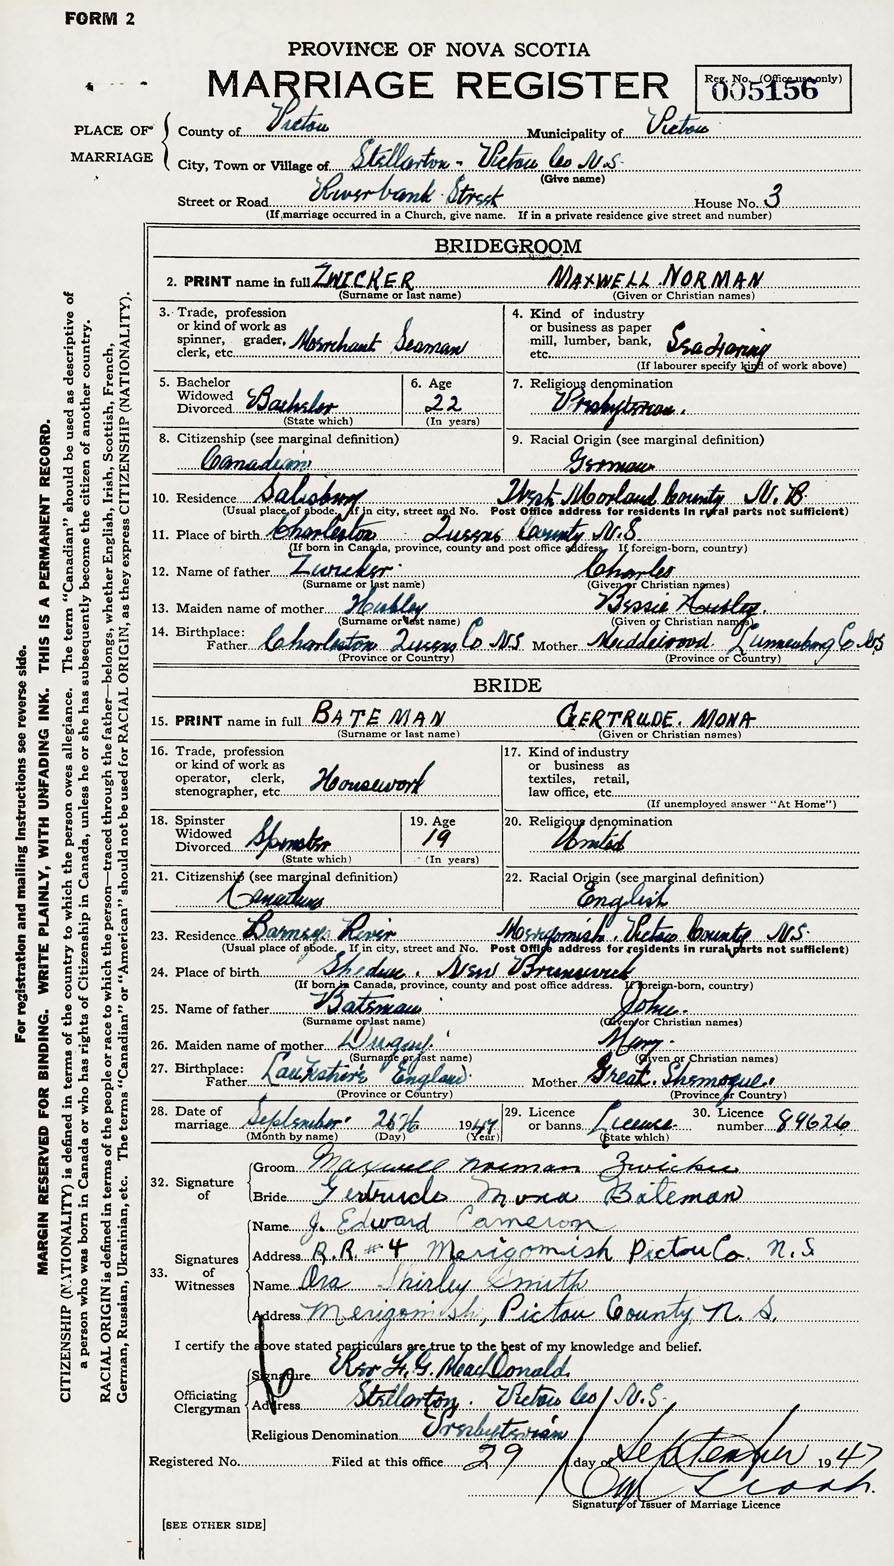 FORM 2
PROVINCE OF NOVA SCOTIA
MARRIAGE REGISTER
Reg. No. (Office use only)
005156
PLACE OF MARRIAGE
County of Pictou Municipality of Pictou
City, Town or Village of Stellarton - Pictou Co N.S.
(Give name)
Street or Road Riverbank Street House No. 3
(If marriage occurred in a Church, give name. If in a private residence give street and number)
BRIDEGROOM
2. PRINT name in full ZWICKER MAXWELL NORMAN
(Surname or last name) (Given or Christian names)
3. Trade, profession or kind of work as spinner, grader, clerk, etc. Merchant Seaman
4. Kind of industry or business as paper mill, lumber, bank, etc. Seafaring
(If labourer specify kind of work above)
5. Bachelor Widowed Divorced Bachelor
(State which)
6. Age 22
(In years)
7. Religious denomination Presbyterian.
8. Citizenship (see marginal definition) Canadian
9. Racial Origin (see marginal definition) German
10. Residence Salisbury West Morland County N.B.
(Usual place of abode. If in city, street and No. Post Office address for residents in rural parts not sufficient)
11. Place of birth Charleston Queens County N.S.
(If born in Canada, province, county and post office address. If foreign-born, country)
12. Name of father Zwicker Charles
(Surname or last name) (Given or Christian names)
13. Maiden name of mother Hubley Bessie Hubley.
(Surname or last name) (Given or Christian names)
14. Birthplace: Father Charleston Queens Co N.S Mother Lunenburg Co. N.S
(Province or Country) (Province or Country)
BRIDE
15. PRINT name in full BATEMAN GERTRUDE. MONA
(Surname or last name) (Given or Christian names)
16. Trade, profession or kind of work as operator, clerk, stenographer, etc. Housework
17. Kind of industry or business as textiles, retail, law office, etc.
(If unemployed answer "At Home")
18. Spinster Widowed Divorced Spinster
(State which)
19. Age 19
(In years)
20. Religious denomination United
21. Citizenship (see marginal definition) Canadian
22. Racial Origin (see marginal definition) English
23. Residence Barneys River Merigomish. Pictou County N.S.
(Usual place of abode. If in city, street and No. Post Office address for residents in rural parts not sufficient)
24. Place of birth Shediac. New Brunswick
(If born in Canada, province, county and post office address. If foreign-born, country)
25. Name of father Bateman John.
(Surname or last name) (Given or Christian names)
26. Maiden name of mother Mary.
(Surname or last name) (Given or Christian names)
27. Birthplace: Father England Mother Great. Shemogue.
(Province or Country) (Province or Country)
28. Date of marriage September 26th 1947
(Month by name) (Day) (Year)
29. Licence or banns License
(State which)
30. Licence number 89626
32. Signature of
Groom Maxwell Norman Zwicker
Bride Gertrude Mona Bateman
33. Signatures of Witnesses
Name J. Edward Cameron
Address R.R. #4 Merigomish Pictou Co. N.S
Name Ora Shirley Smith
Address Merigomish, Pictou County, N.S.
I certify the above stated particulars are true to the best of my knowledge and belief.
Officiating Clergyman
Signature Rev. H. G. MacDonald
Address Stellarton. Pictou Co N.S.
Religious Denomination Presbyterian
Registered No. Filed at this office 29 day of September 1947
Signature of Issuer of Marriage Licence
[SEE OTHER SIDE]
For registration and mailing instructions see reverse side.
MARGIN RESERVED FOR BINDING. WRITE PLAINLY, WITH UNFADING INK. THIS IS A PERMANENT RECORD.
CITIZENSHIP (NATIONALITY) is defined in terms of the country to which the person owes allegiance. The term "Canadian" should be used as descriptive of
a person who was born in Canada or who has rights of Citizenship in Canada, unless he or she has subsequently become the citizen of another country.
RACIAL ORIGIN is defined in terms of the people or race to which the person—traced through the father—belongs, whether English, Irish, Scottish, French,
German, Russian, Ukrainian, etc. The terms "Canadian" or "American" should not be used for RACIAL ORIGIN, as they express CITIZENSHIP (NATIONALITY).